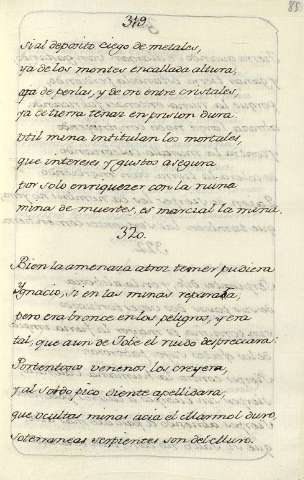 85
319.
Si al deposito ciego de metales,
ya de los montes encallada altura,
de perlas, y de oro entre cristales,
ya de tierra tenaz en prision dura
util mina intitulan los mortales,
que intereses y gustos asegura
por solo enriquezer con la ruina
mina de muertes, es marcial la mina.
320.
Bien la amenaza atroz temer pudiera
Ygnacio, si en las minas reparara,
pero era bronce en los peligros, y era
tal, que aun de Jobe el ruido despreciara:
Portentosas venenos los creyera,
y al sordo pico diente apellidara;
que ocultas minas acia el Marmol duro,
soterraneas serpientes son del Muro.